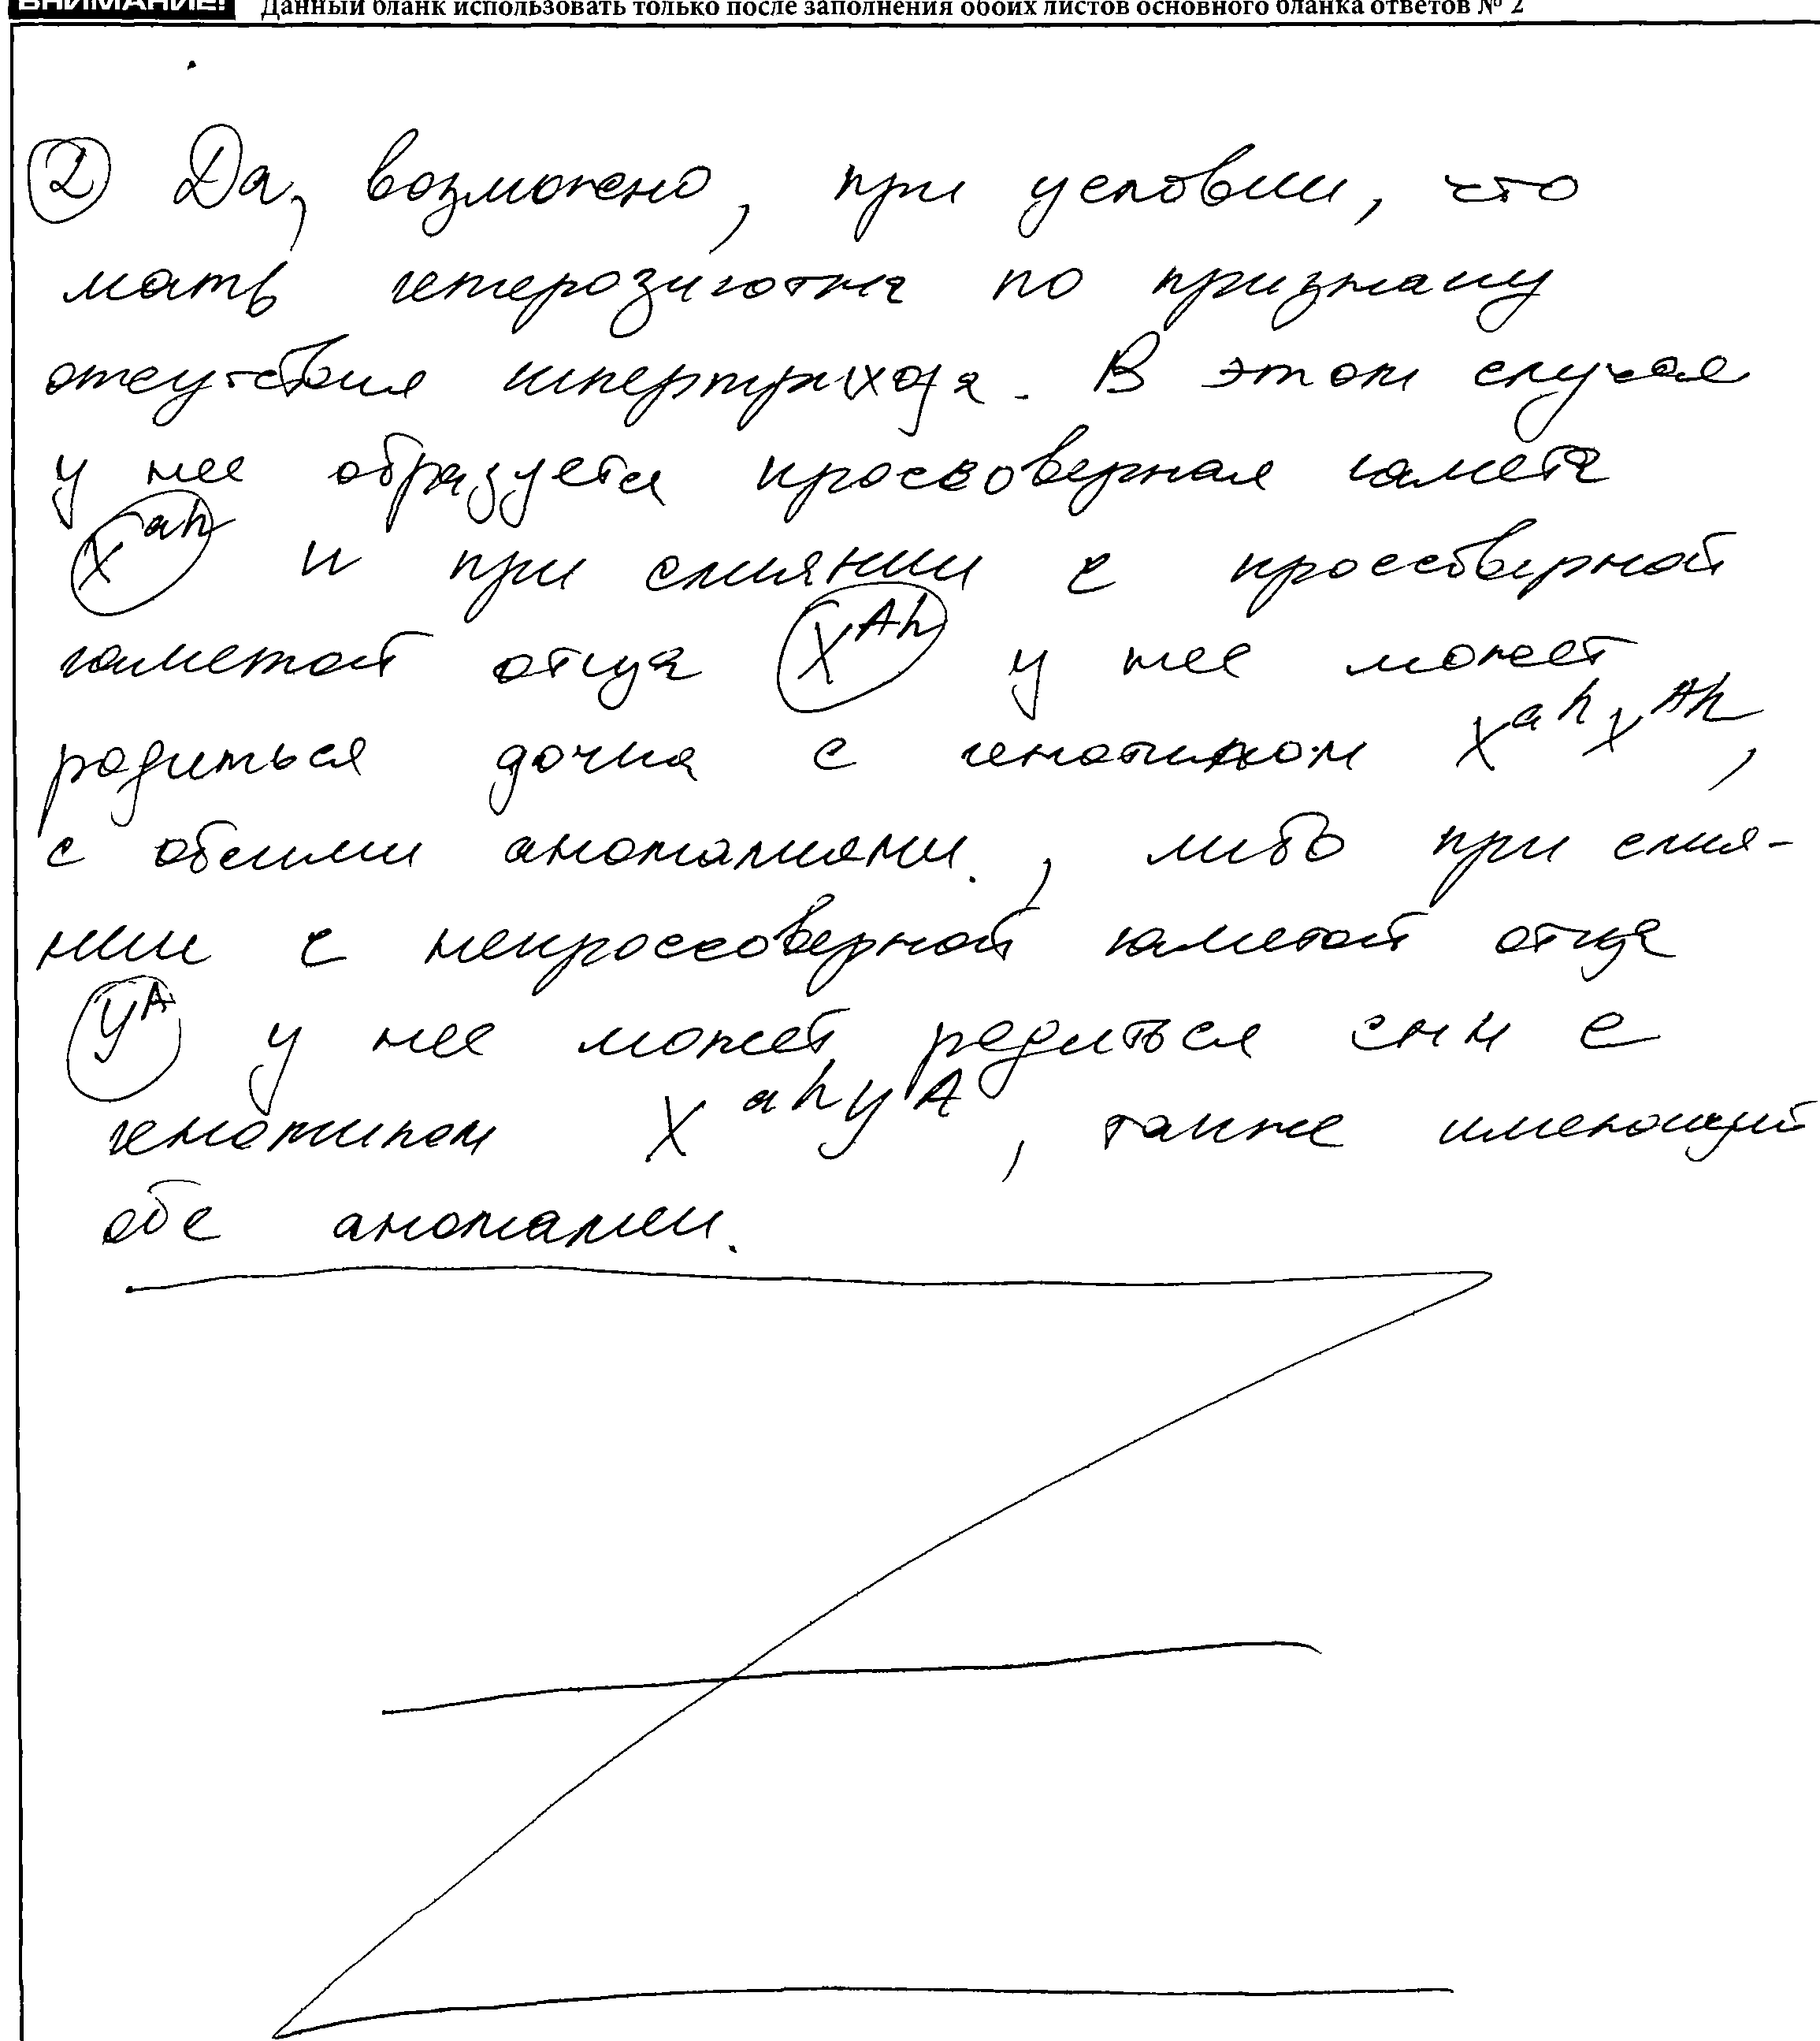 ВНИМАНИЕ! Данный бланк использовать только после заполнения обоих листов основного бланка ответов № 2
2 Да, возможно, при условии, что
мать гетерозиготна по признаку
отсутствия гипертрихоза. В этом случае
у нее образуется кроссоверная гамета
X^ah и при слиянии с кроссоверной
гаметой отца X^Ah у нее может
родиться дочка с генотипом X^ah X^Ah,
с обеими аномалиями., либо при слия-
нии с некроссоверной гаметой отца
y^A у нее может родиться сын с
генотипом X^ah y^A, также имеющий
обе аномалии.